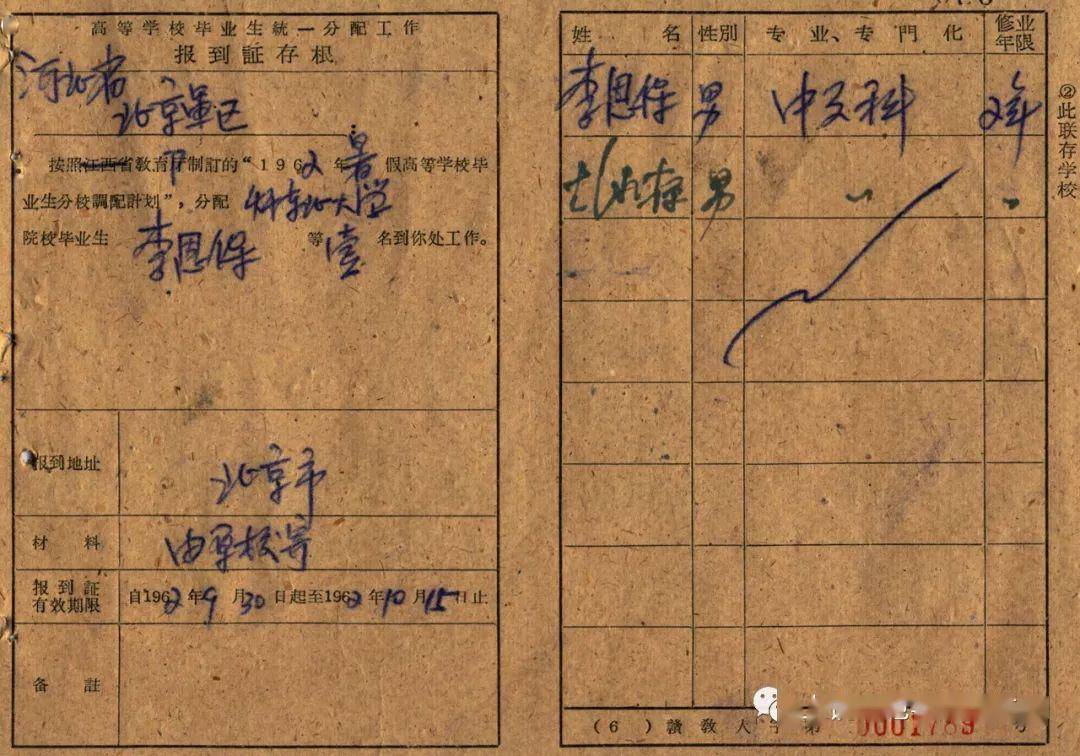 高等学校毕业生統一分配工作
报到証存根
河北省
北京軍区
按照江西省敎育厅制訂的“1962年暑假高等学校毕
业生分校調配計划”，分配
大学
院校毕业生 李恩保 等壹名到你处工作。
报到地址 北京市
材料 由原校寄
报到証
有效期限 自1962年9月30日起至1962年10月15日止
备註
姓名 性別 专业、专門化 修业年限
李恩保 男 中文科 2年
男 〃 〃
②此联存学校
(6) 贛敎 第 0001789 号